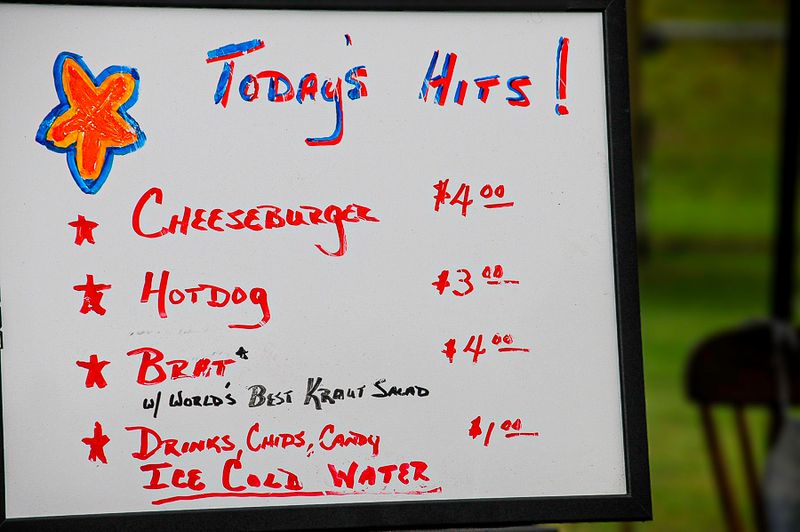 TODAY'S HITS!
★ CHEESEBURGER $4.00
★ HOTDOG $3.00
★ BRAT* $4.00
W/ WORLD'S BEST KRAUT SALAD
★ DRINKS, CHIPS, CANDY $1.00
ICE COLD WATER